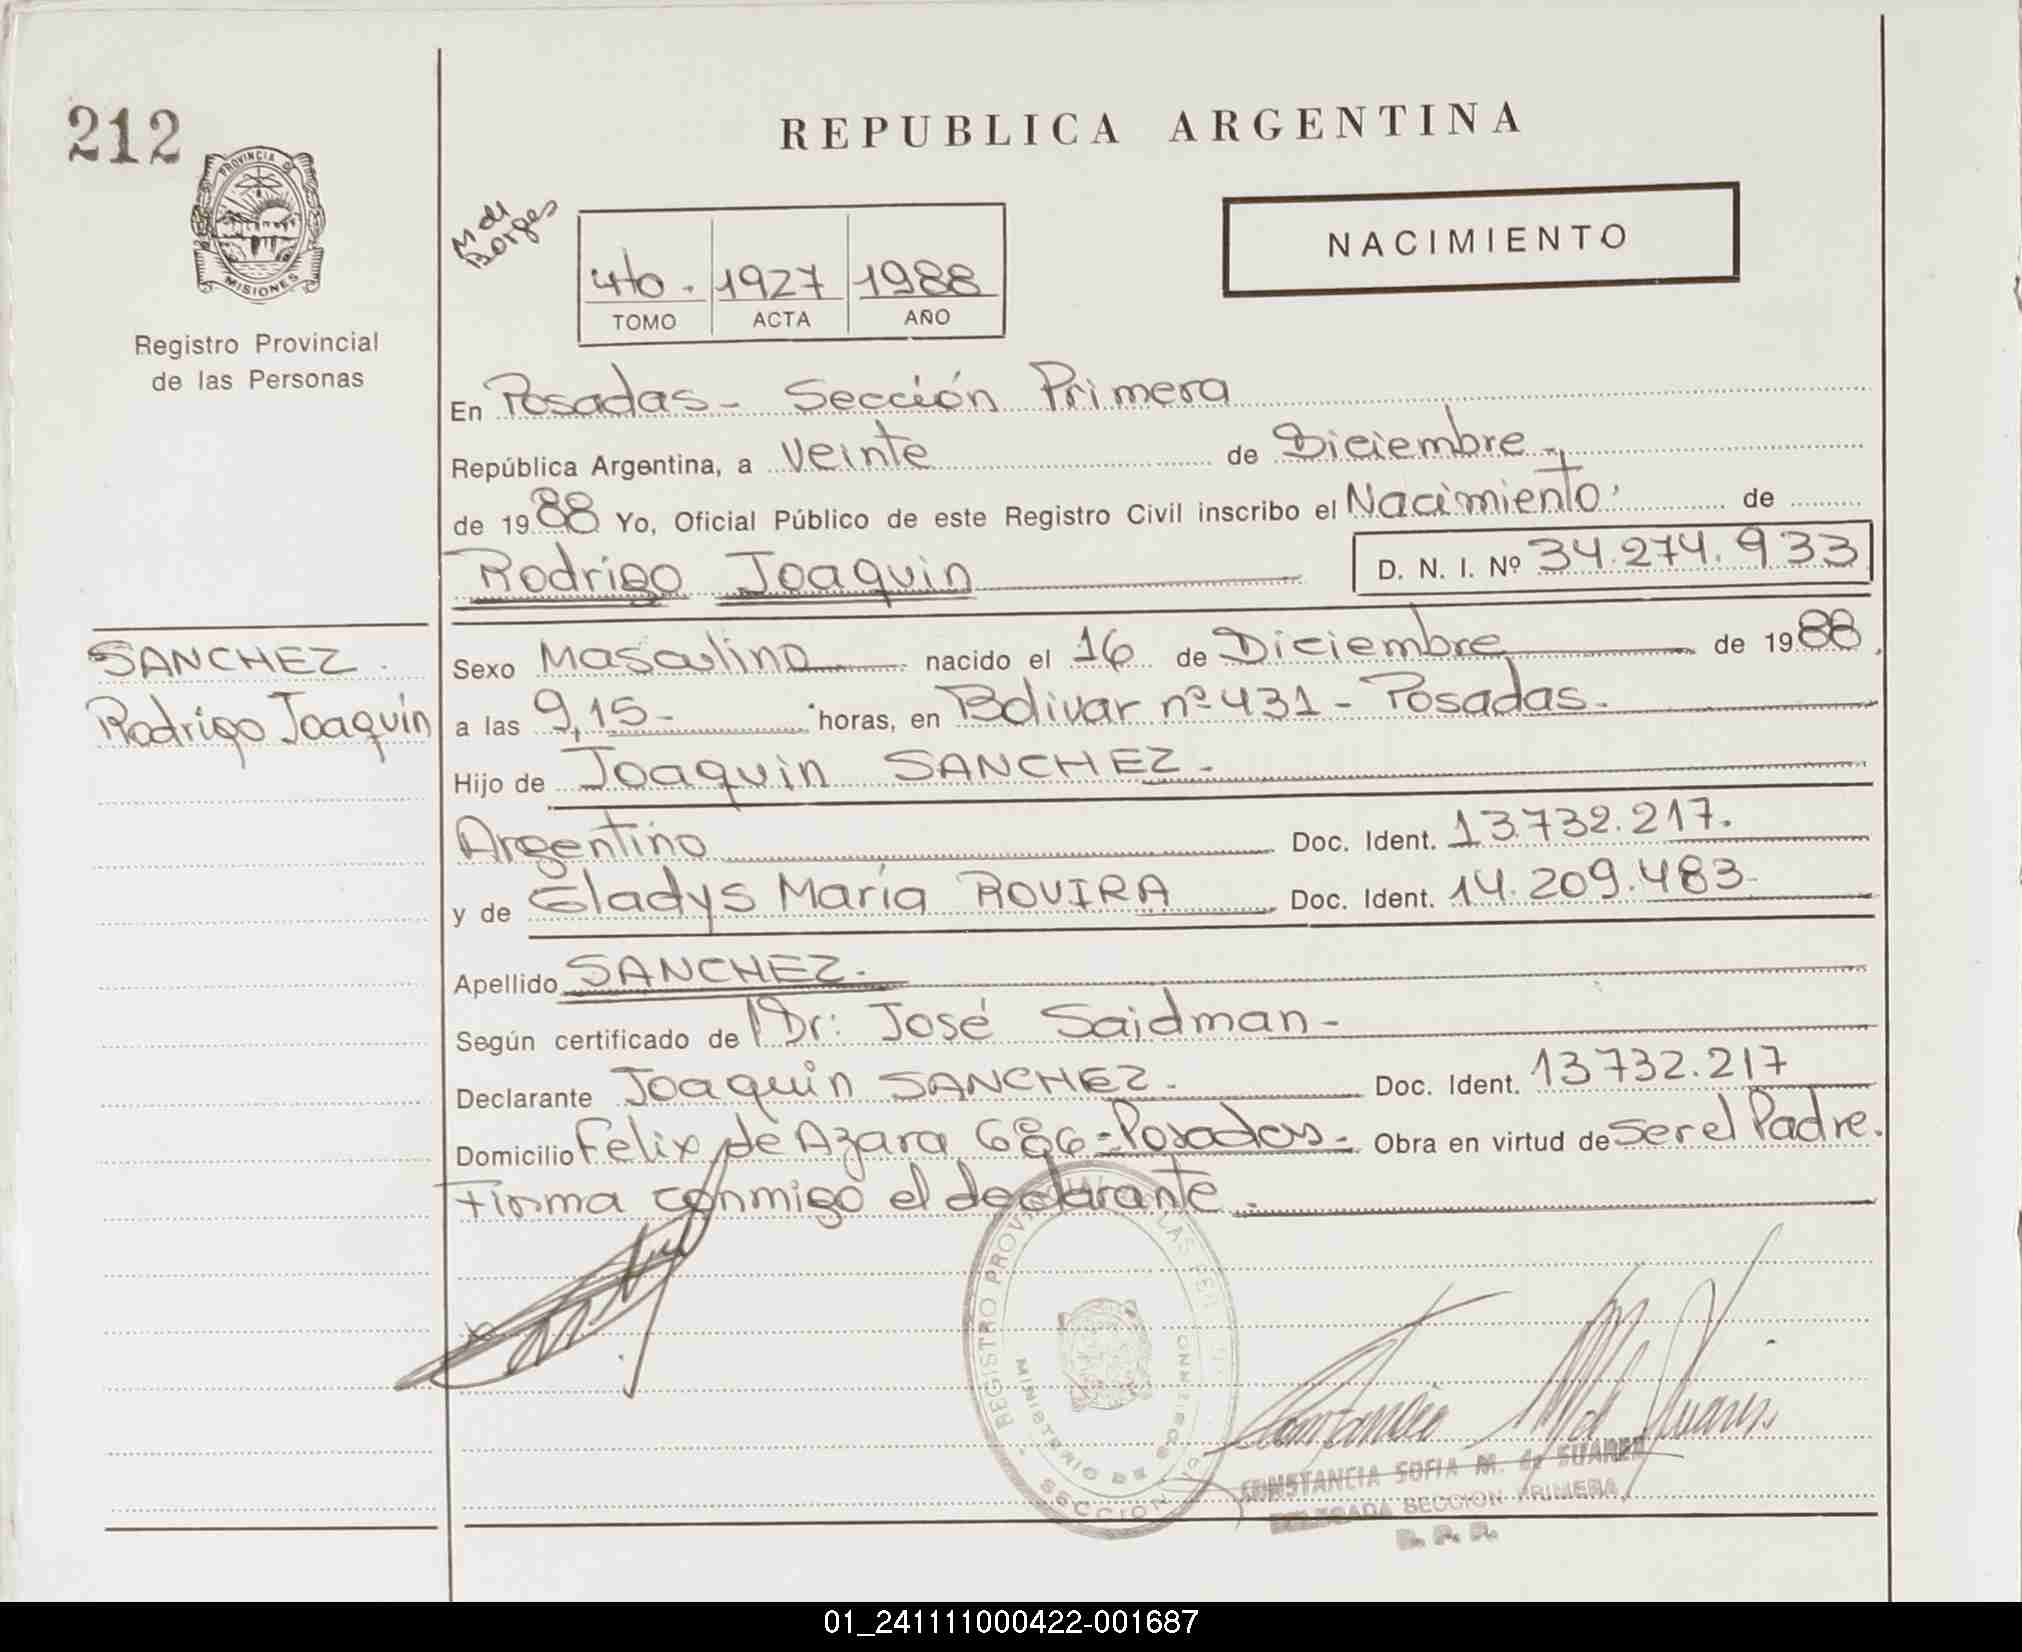 212
REPUBLICA ARGENTINA
PROVINCIA D
MISIONES
Registro Provincial
de las Personas
M de
Borges
4to. 1927 1988
TOMO ACTA AÑO
NACIMIENTO
En Posadas - Sección Primera
República Argentina, a Veinte de Diciembre.-
de 1988 Yo, Oficial Público de este Registro Civil inscribo el Nacimiento de
Rodrigo Joaquin D. N. I. Nº 34.274.933
SANCHEZ
Rodrigo Joaquín
Sexo Masculino nacido el 16 de Diciembre de 1988,
a las 9,15- horas, en Bolivar nº 431 - Posadas.
Hijo de Joaquin SANCHEZ.
Argentino Doc. Ident. 13.732.217.
y de Gladys María ROVIRA Doc. Ident. 14.209.483-
Apellido SANCHEZ.
Según certificado de Dr: José Saidman-
Declarante Joaquin SANCHEZ. Doc. Ident. 13732.217
Domicilio Felix de Azara 686 - Posadas. Obra en virtud de Ser el Padre.
Firma conmigo el declarante.
REGISTRO PROVINCIAL DE LAS PER
MINISTERIO DE GOBIERNO
SECCION
CONSTANCIA SOFIA M. de SUAREZ
DELEGADA SECCION PRIMERA
R. P. P.
01_241111000422-001687